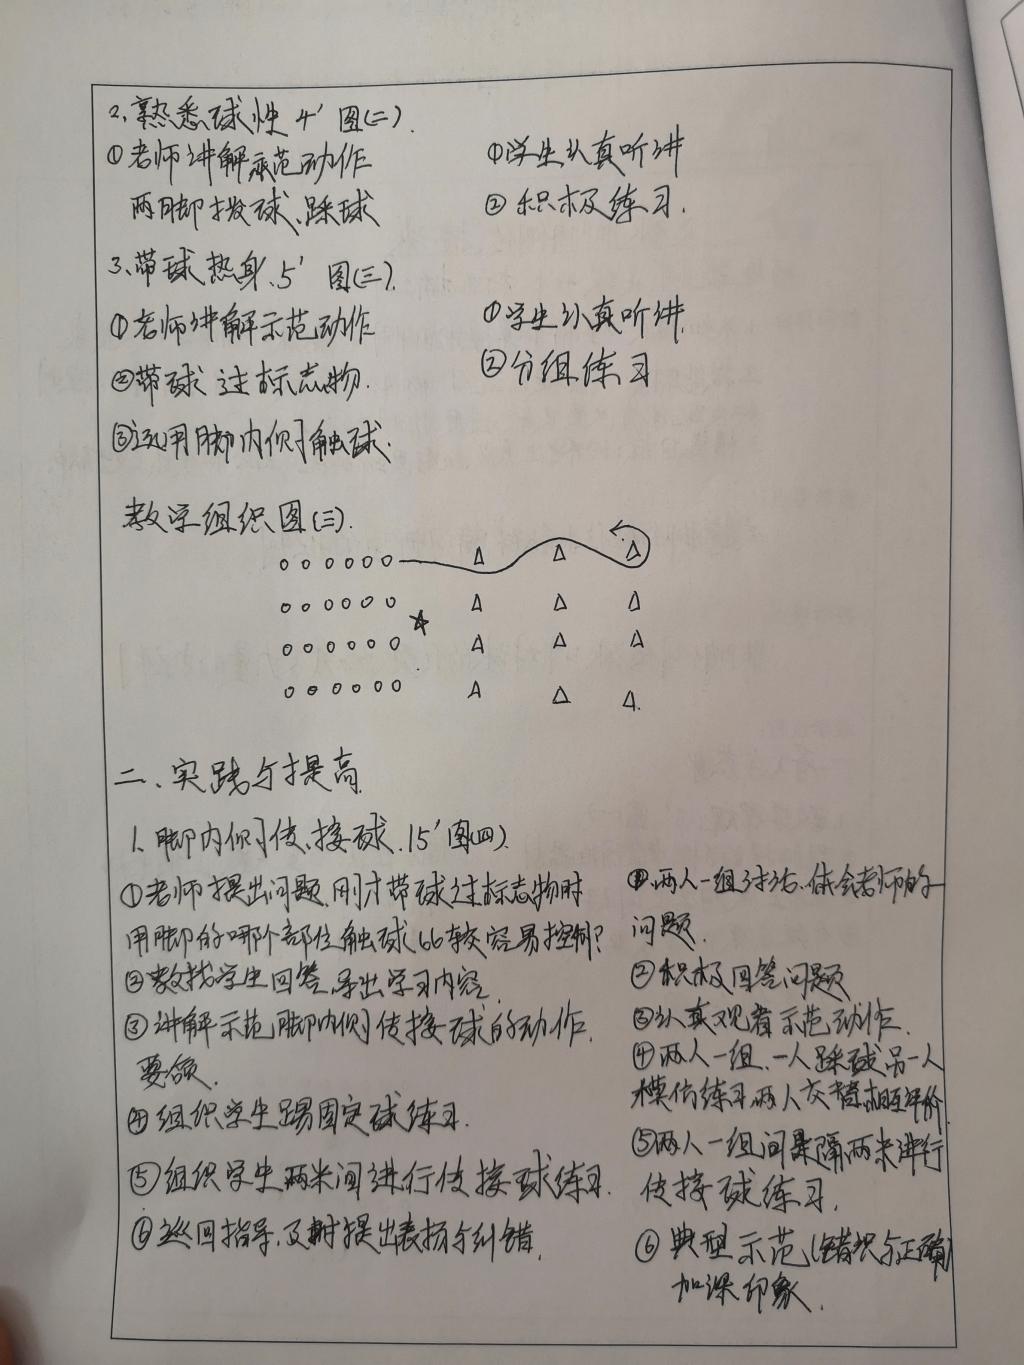 2、熟悉球性 4′ 图(二).
①老师讲解示范动作
两脚拨球、踩球
①学生认真听讲
②积极练习.
3、带球热身、5′ 图(三).
①老师讲解示范动作
②带球过标志物.
③运用脚内侧触球.
①学生认真听讲.
②分组练习
教学组织图(三).
二、实践与提高
1、脚内侧传、接球.15′图(四)
①老师提出问题.刚才带球过标志物时
用脚的哪个部位触球比较容易控制?
②教找学生回答,导出学习内容.
③讲解示范脚内侧传接球的动作.
要领.
④组织学生踢固定球练习.
⑤组织学生两米间进行传接球练习.
⑥巡回指导.及时提出表扬与纠错.
①两人一组讨论、体会老师的
问题.
②积极回答问题
③认真观看示范动作.
④两人一组、一人踩球另一人
模仿练习,两人交替相互评价
⑤两人一组间隔两米进行
传接球练习.
⑥典型示范(错误与正确)
加深印象.